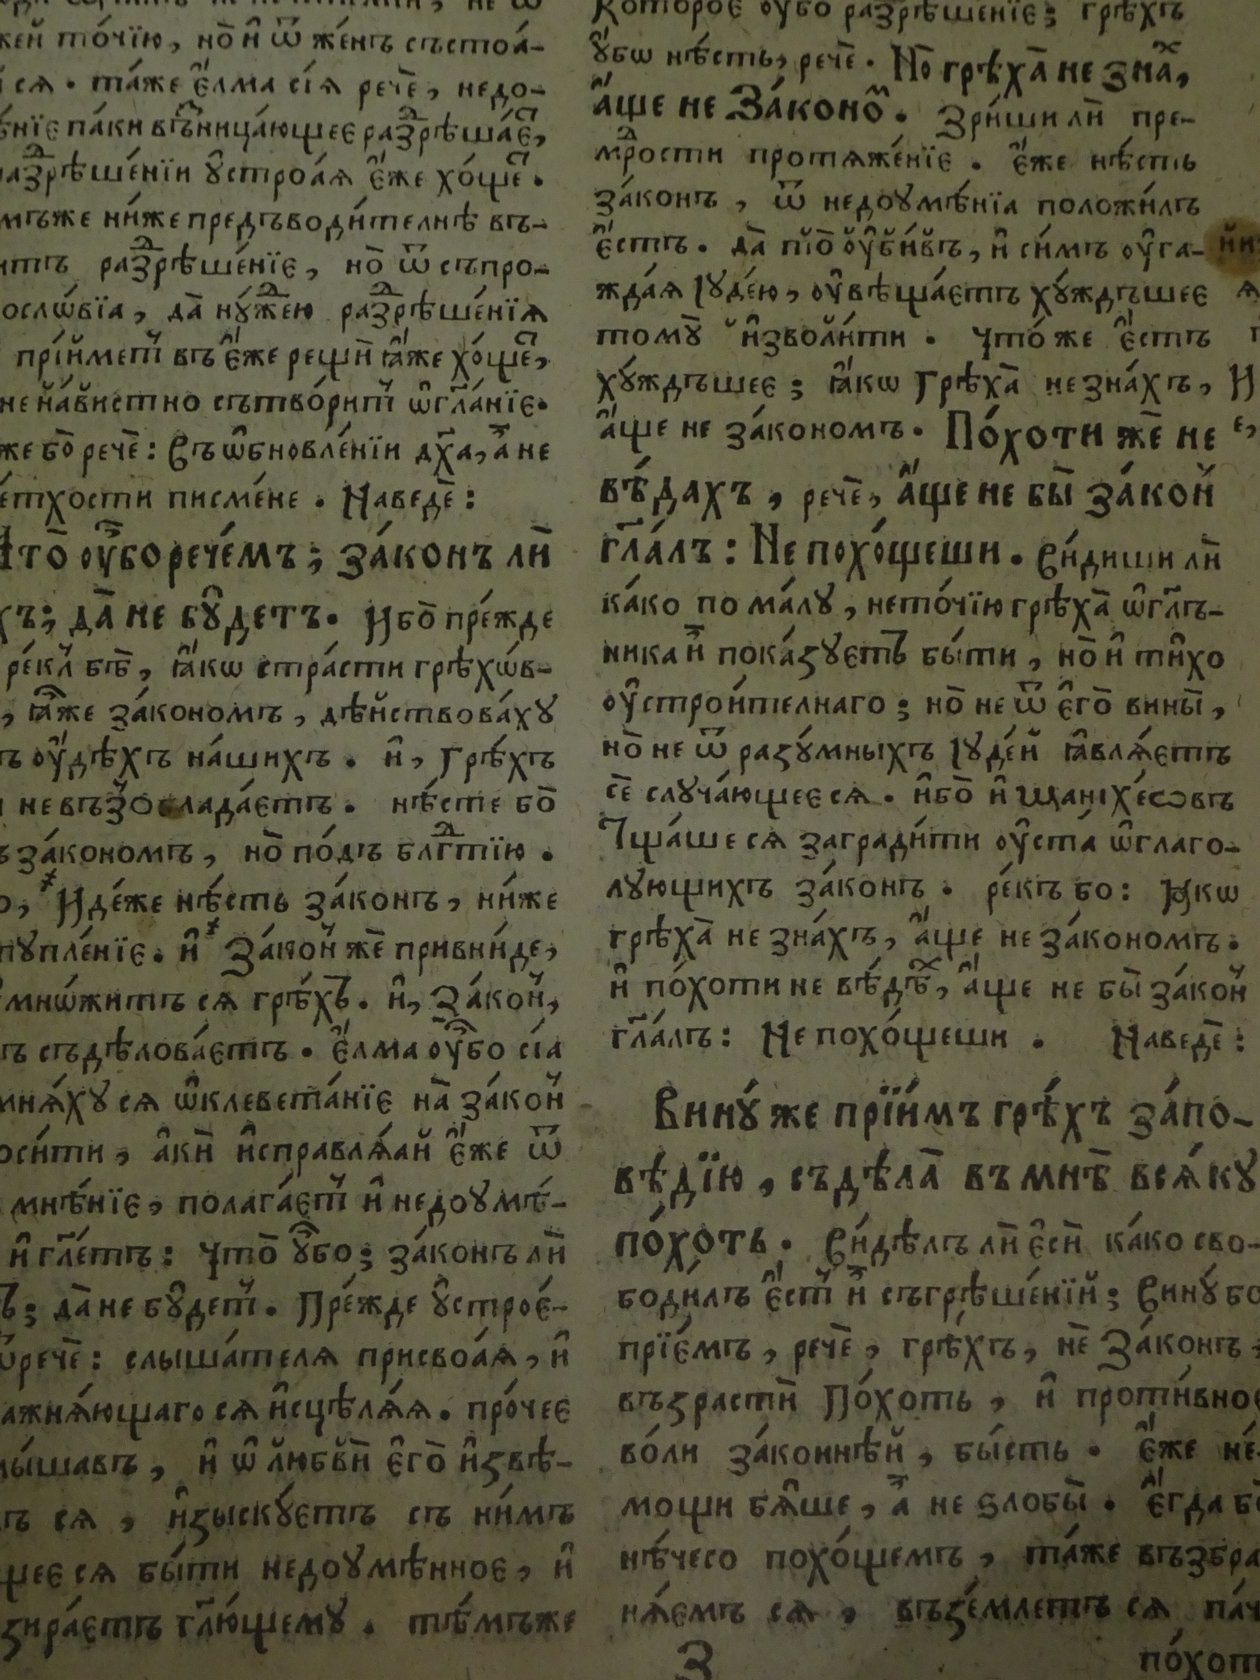 же́й то́чїю, но̀ и҆ ѿ же́нъ състоѧ́-
сѧ. та́же є҆́лма сїѧ̀ речѐ, недо-
па́ки
хо́щеⷮ.
мъже ни́же предъводи́телнѣ въ-
разⷣрѣше́нїє, но̀ ѿ съпро-
ослѡ́вїа, да̀ ну́жⷣею разⷣрѣше́нїѧ
прїи́метⸯ въ є҆́же рещѝ ꙗ҆́же хо́щеⷮ,
не на́вистно сътвори́тⸯ ѡ҆гл҃а́нїє.
же бо̀ речѐ: Въ ѡ҆бновле́нїи дх҃а, а҆ не
є́тхости писме́не. Наведѐ:
Что̀ оу҆̀бо рече́мъ; зако́нъ лѝ
хъ; да̀ не бу́детъ. Ибо̀ пре́жде
ре́клⸯ бѣ̀, ꙗ҆́кѡ стра́сти грѣхѡ́в-
, ꙗ҆̀же зако́номъ, дѣ́йствова́ху
оу҆́дѣхъ на́шихъ. и҆, Грѣ́хъ
не възⸯѡблада́єтъ. нѣ́сте бо̀
зако́номъ, но̀ по́дъ блгⷣтїю.
Иде́же нѣ́сть зако́нъ, ни́же
пупле́нїє. и҆ Зако́нⸯ жѐ привни́де,
мно́житъ сѧ грѣ́хъ. и҆, Зако́нⸯ,
съдѣлова́єтъ. Є҆́лма оу҆̀бо сїѧ̀
мнѧ́ху сѧ ѡ҆клевета́нїє на̀ зако́нⸯ
оси́ти, а҆́кѝ и҆справлѧ́ай є҆́же ѿ
мнѣ́нїє, полага́єтⸯ и҆ недоумѣ́-
и҆ гл҃етъ: Что̀ у҆̀бо; зако́нъ лѝ
да̀ не бу́детⸯ. Пре́жде у҆строє́-
речѐ: слы́шателѧ присвоѧ́ѧ, и҆
ажнѧ́ющаго сѧ и҆сцѣлѧ́ѧ. про́чеє
лы́шавъ, и҆ ѡ҆ любвѝ є҆го̀ и҆звѣ-
сѧ, и҆зыску́єтъ съ ни́мъ
щеє сѧ бы́ти недоумѣ́нноє, и҆
зира́єтъ гл҃ющему. тѣ́мъже
Которо́є оу҆́бо разⷣрѣше́нїє; грѣ́хъ
у҆́бѡ нѣ́сть, речѐ. Но̀ грѣха̀ не зна́ⷯ,
а҆́ще не Зако́ноⷨ. Зри́ши лѝ пре-
мⷣрости протѧже́нїє. є҆́же нѣ́сть
зако́нъ, ѿ недоумѣ́нїа положи́лъ
є҆́стъ. да̀ по̀ и҆ си́мъ оу҆га-
жда́ѧ Іуде́ю, оу҆вѣща́єтъ ху́ждъшеє
тому̀ и҆зво́лити. что́ же є҆́стъ
ху́ждъшеє; ꙗ҆́кѡ Грѣха̀ не зна́хъ,
а҆́ще не зако́номъ. По́хоти жѐ не
вѣ́дахъ, речѐ, а҆́ще не бы̀ зако́нⸯ
гл҃а́лъ: Не похо́щеши. Ви́диши лѝ
ка́ко по ма́лу, нето́чїю грѣха̀ ѡ҆гл҃ъ-
ника и҆̀ показу́єтъ бы́ти, но̀ и҆ ти́хо
оу҆строи́телнаго; но̀ не ѿ є҆го̀ вины̀,
но̀ не ѿ разу́мныхъ Іуде́й ꙗ҆влѧ́єтъ
сѐ случа́ющеєсѧ. и҆бо̀ и҆ Маніхе́ѡвъ
Тща́ше сѧ загради́ти оу҆ста́ ѡ҆глаго-
лующихъ зако́нъ. ре́къ бо: Ꙗкѡ
грѣха̀ не зна́хъ, а҆́ще не зако́номъ.
и҆ по́хоти не вѣ́дѣⷯ, а҆́ще не бы̀ зако́нⸯ
гл҃а́лъ: Не похо́щеши. Наведѐ:
Вину́ же прїи́мъ грѣ́хъ за́по-
вѣдїю, съдѣ́ла̀ въ мнѣ̀ всѧ́ку
по́хоть. Ви́дѣлъ лѝ є҆сѝ ка́ко сво-
боди́лъ є҆́стⸯ и҆̀ съгрѣше́нїй; Вину́ бо
прїе́мъ, речѐ, грѣ́хъ, нѐ Зако́нъ,
възрастѝ По́хоть, и҆ проти́вноє
во́ли зако́ннѣй, бы́сть. є҆́же не́-
мощи бѧ́ше, а҆ не ѕло́бы. є҆гда̀
нѣ́чесо похо́щемъ, та́же възбра
нѧ́ємъ сѧ, възе́млетъ сѧ па́ч
З
по́хоть